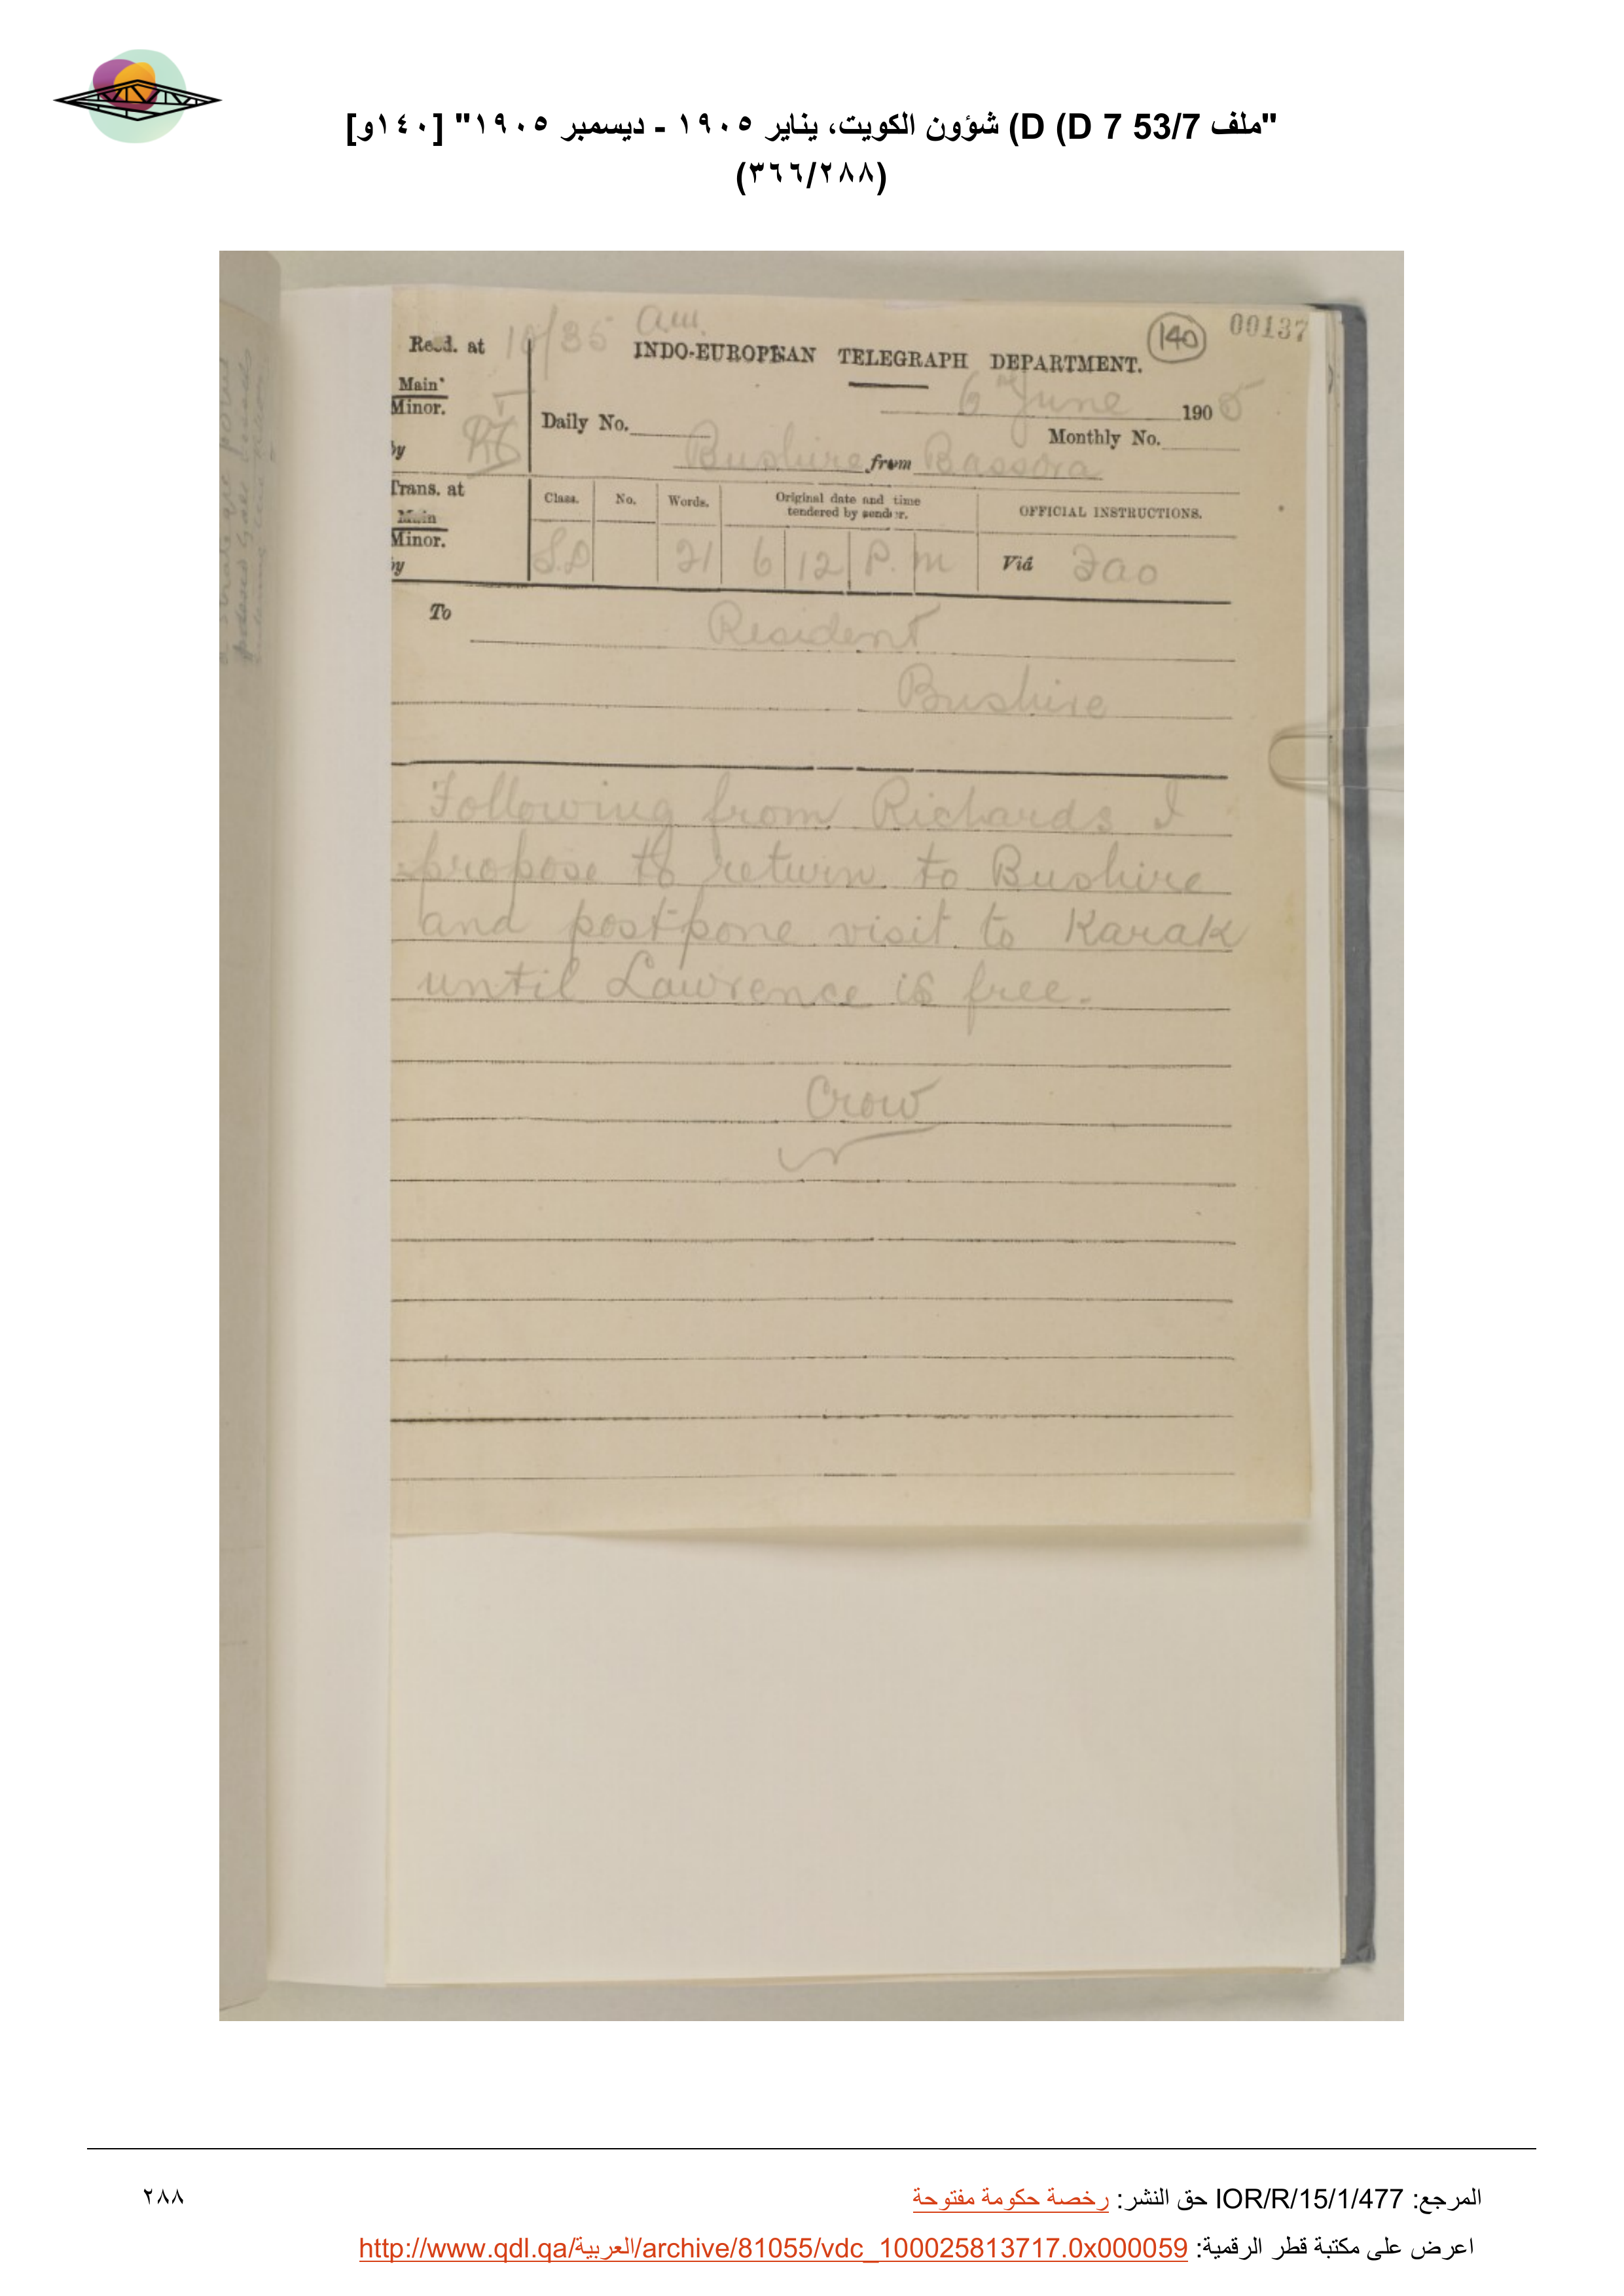 "ملف 53/7 D 7) D) شؤون الكويت، يناير ١٩٠٥ - ديسمبر ١٩٠٥" [١٤٠و]
(٣٦٦/٢٨٨)
a.m.
140
00137
Recd. at 10/35
INDO-EUROPEAN TELEGRAPH DEPARTMENT.
Main
Minor.
6 June 1905
Daily No.
Monthly No.
by
Bushire from Bassora
Trans. at
Class. No. Words. Original date and time tendered by sender. OFFICIAL INSTRUCTIONS.
Main
Minor.
by
S.D 21 6 12 P. m Viâ Fao
To
Resident
Bushire
Following from Richards I
propose to return to Bushire
and postpone visit to Karak
until Lawrence is free.
Crow
المرجع: IOR/R/15/1/477 حق النشر: رخصة حكومة مفتوحة
٢٨٨
اعرض على مكتبة قطر الرقمية: http://www.qdl.qa/العربية/archive/81055/vdc_100025813717.0x000059